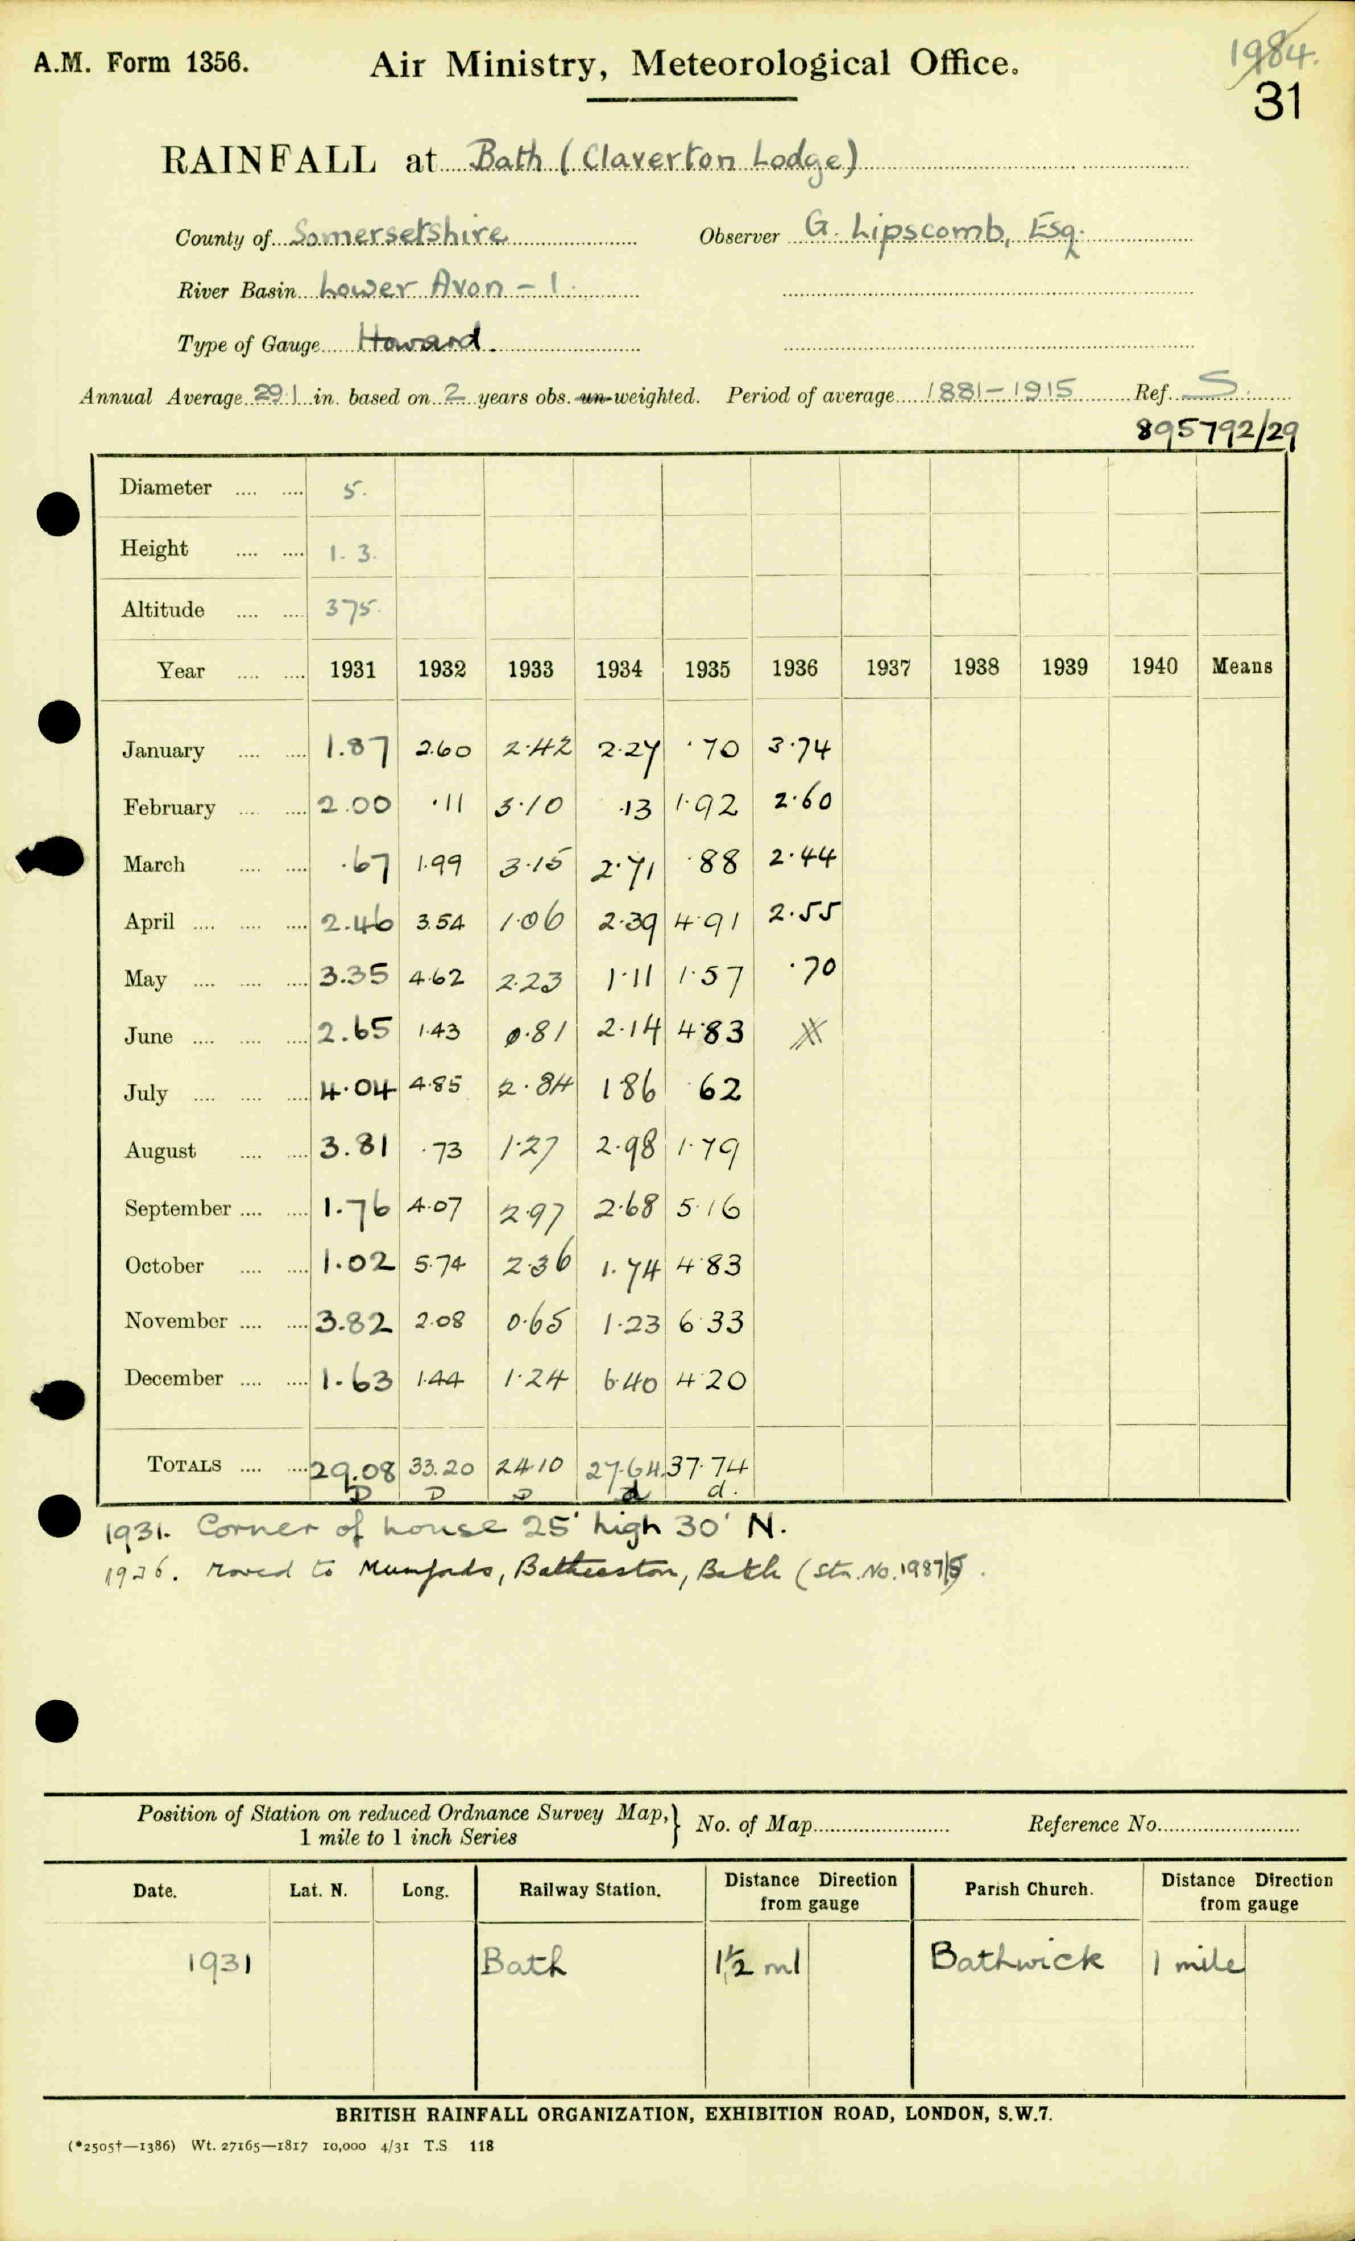 A.M. Form 1356. Air Ministry, Meteorological Office. 1984.
31
RAINFALL at Bath (Claverton Lodge)
County of Somersetshire Observer G. Lipscomb, Esq.
River Basin Lower Avon - 1.
Type of Gauge Howard.
Annual Average 29.1 in. based on 2 years obs. un-weighted. Period of average 1881-1915 Ref. S.
895792/29
Diameter .... .... 5.
Height .... .... 1. 3.
Altitude .... .... 375.
Year .... .... 1931 1932 1933 1934 1935 1936 1937 1938 1939 1940 Means
January .... .... 1.87 2.60 2.42 2.27 .70 3.74
February .... .... 2.00 .11 3.10 .13 1.92 2.60
March .... .... .67 1.99 3.15 2.71 .88 2.44
April .... .... .... 2.46 3.54 1.06 2.39 4.91 2.55
May .... .... .... 3.35 4.62 2.23 1.11 1.57 .70
June .... .... .... 2.65 1.43 0.81 2.14 4.83
July .... .... .... 4.04 4.85 2.84 1.86 .62
August .... .... 3.81 .73 1.27 2.98 1.79
September .... .... 1.76 4.07 2.97 2.68 5.16
October .... .... 1.02 5.74 2.36 1.74 4.83
November .... .... 3.82 2.08 0.65 1.23 6.33
December .... .... 1.63 1.44 1.24 6.40 4.20
TOTALS .... .... 29.08 33.20 24.10 27.64 37.74
D D D d d.
1931. Corner of house 25' high 30' N.
1936. Moved to Mumfords, Batheaston, Bath (Stn. No. 1987/5.
Position of Station on reduced Ordnance Survey Map,} No. of Map Reference No.
1 mile to 1 inch Series
Date. Lat. N. Long. Railway Station. Distance Direction from gauge Parish Church. Distance Direction from gauge
1931 Bath 1½ ml Bathwick 1 mile
BRITISH RAINFALL ORGANIZATION, EXHIBITION ROAD, LONDON, S.W.7.
(*2505†—1386) Wt. 27165—1817 10,000 4/31 T.S 118